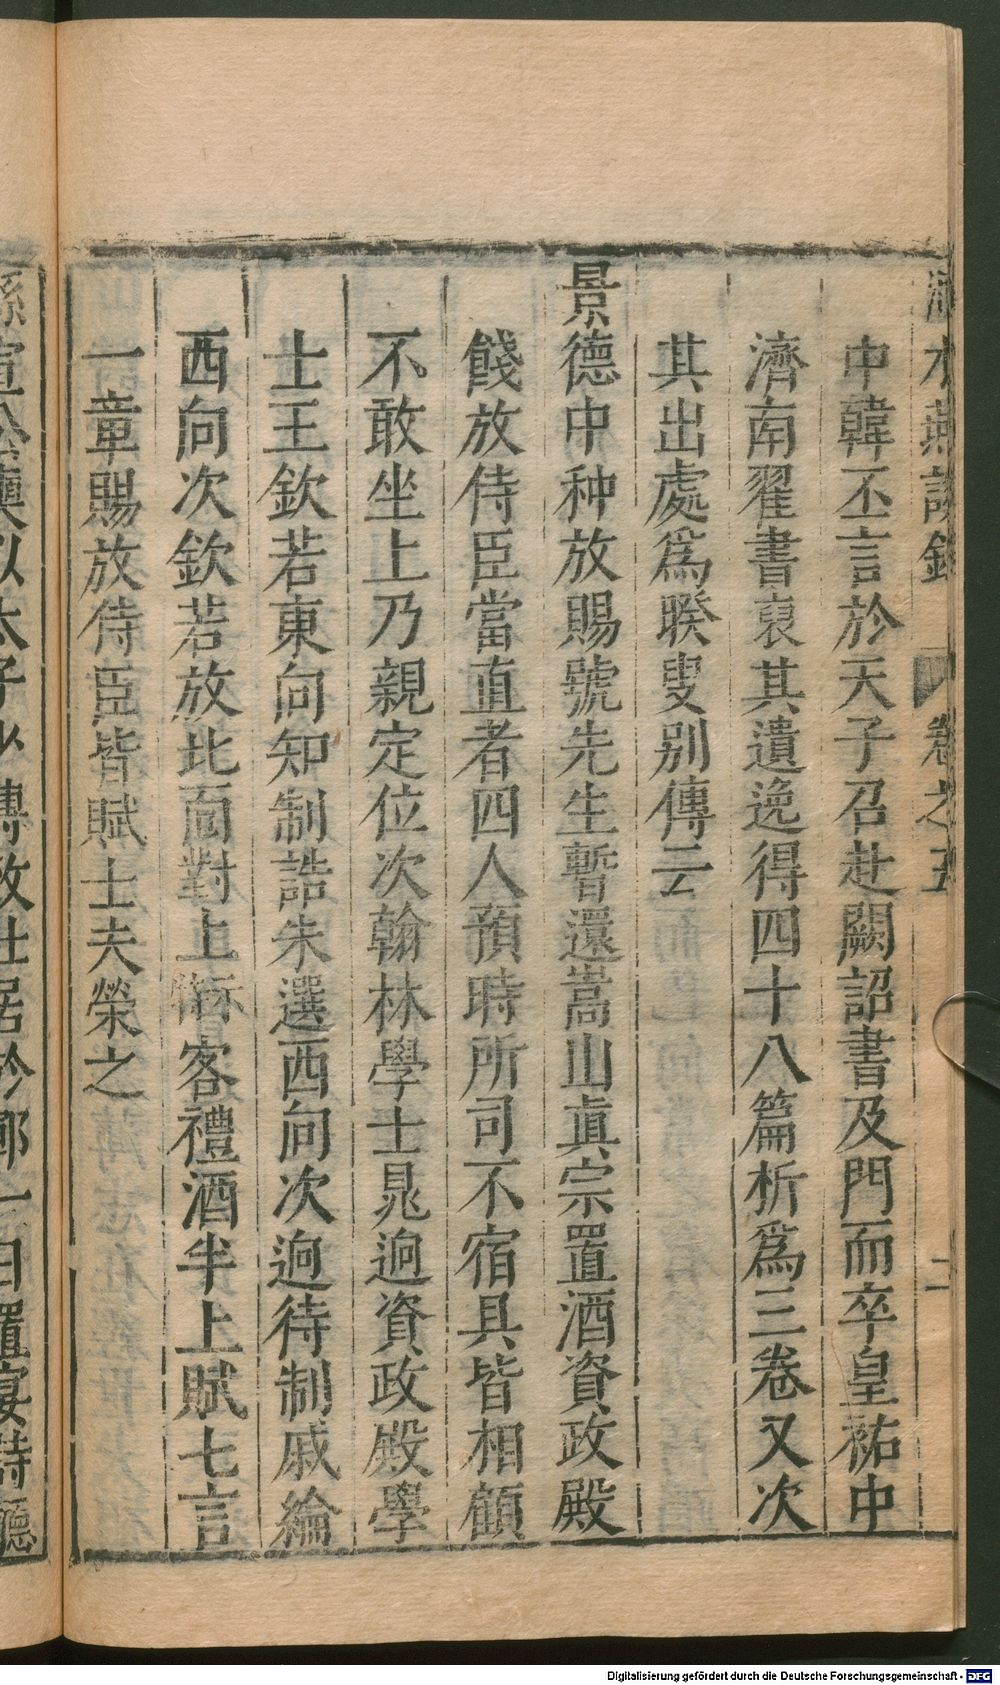 水燕談錄 卷之五 二
中韓丕言於天子召赴闕詔書及門而卒皇祐中
濟南翟書裒其遺逸得四十八篇析爲三卷又次
其出處爲睽叟别傳云
景德中种放賜號先生暫還嵩山眞宗置酒資政殿
餞放侍臣當直者四人預時所司不宿具皆相顧
不敢坐上乃親定位次翰林學士晁逈資政殿學
士王欽若東向知制誥朱選西向次逈待制戚綸
西向次欽若放北面對上客禮酒半上賦七言
一章賜放侍臣皆賦士夫榮之
孫宣公奭以太子少傅致仕居於鄆一日置宴詩廳
Digitalisierung gefördert durch die Deutsche Forschungsgemeinschaft - DFG